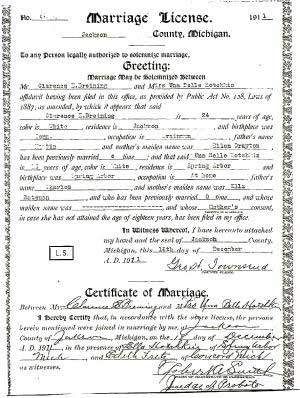 No. Marriage License. 191
Jackson County, Michigan.
To any Person legally authorized to solemnize marriage,
Greeting:
Marriage May be Solemnized Between
Mr Clarence E. Breining and Miss Una Belle Hotchkiss
affidavit having been filed in this office, as provided by Public Act No. 128, Laws of
1887, as amended, by which it appears that said
Clarence E. Breining is 24 years of age,
color is White, residence is Jackson, and birthplace was
Iowa, occupation is, father's name
and mother's maiden name was Ellen Drayton
has been previously married 0 time; and that said Una Belle Hotchkiss
is years of age, color is White, residence is Spring Arbor and
birthplace was Spring Arbor, occupation is At home, father's
name, and mother's maiden name was Ella
Bateman and who has been previously married 0 time, and
whose maiden name was, and whose Mother's consent,
in case she has not attained the age of eighteen years, has been filed in my office.
In Witness Whereof, I have hereunto attached
my hand and the seal of Jackson County,
Michigan, this 16th day of December
L.S.
A. D. 191
Geo. H. Townsend
Certificate of Marriage.
Between Mr. Clarence E. Breining and Miss Una Belle Hotchkiss
I hereby Certify that, in accordance with the above License, the persons
herein mentioned were joined in marriage by me, at Jackson
County of Jackson, Michigan, on the day of December
A. D. 191, in the presence of Ella Hotchkiss of Spring Arbor
Mich and Edith of Concord Mich
as witnesses.
Smith
Judge of Probate